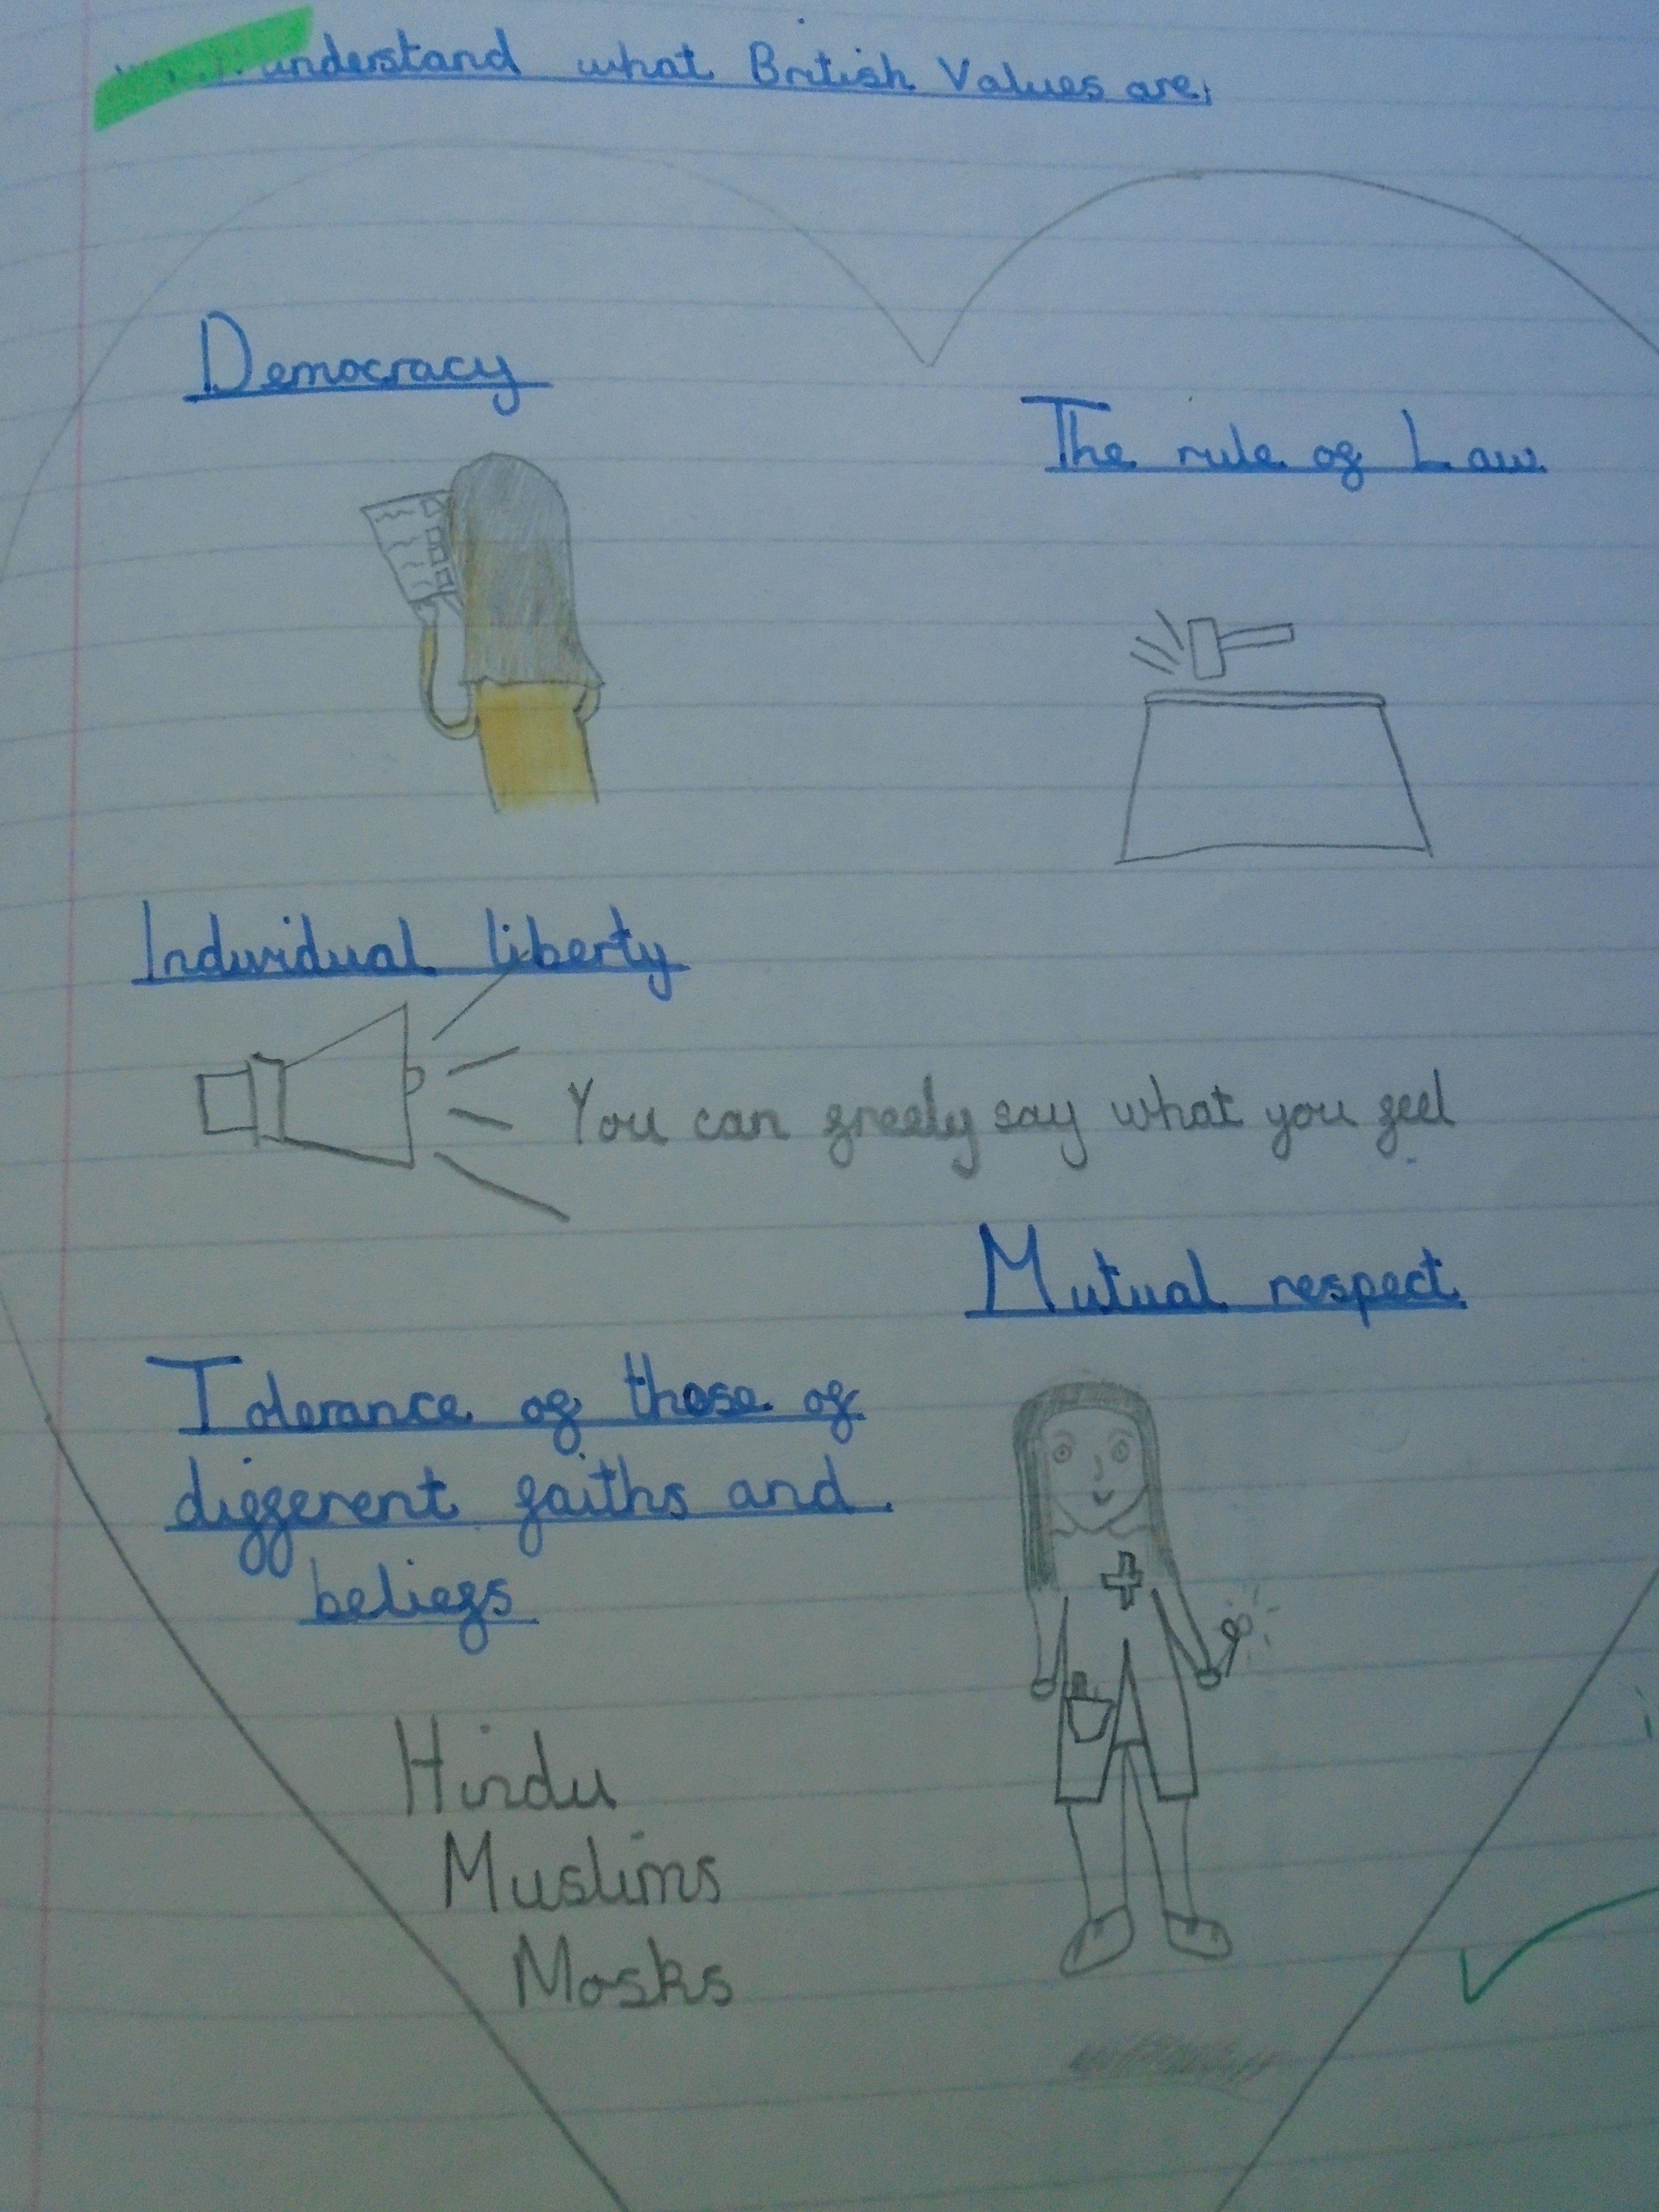 understand what British Values are,
Democracy
The rule of Law
Individual liberty
You can freely say what you feel
Mutual respect
Tolerance of those of
different faiths and
beliefs
Hindu
Muslims
Mosks